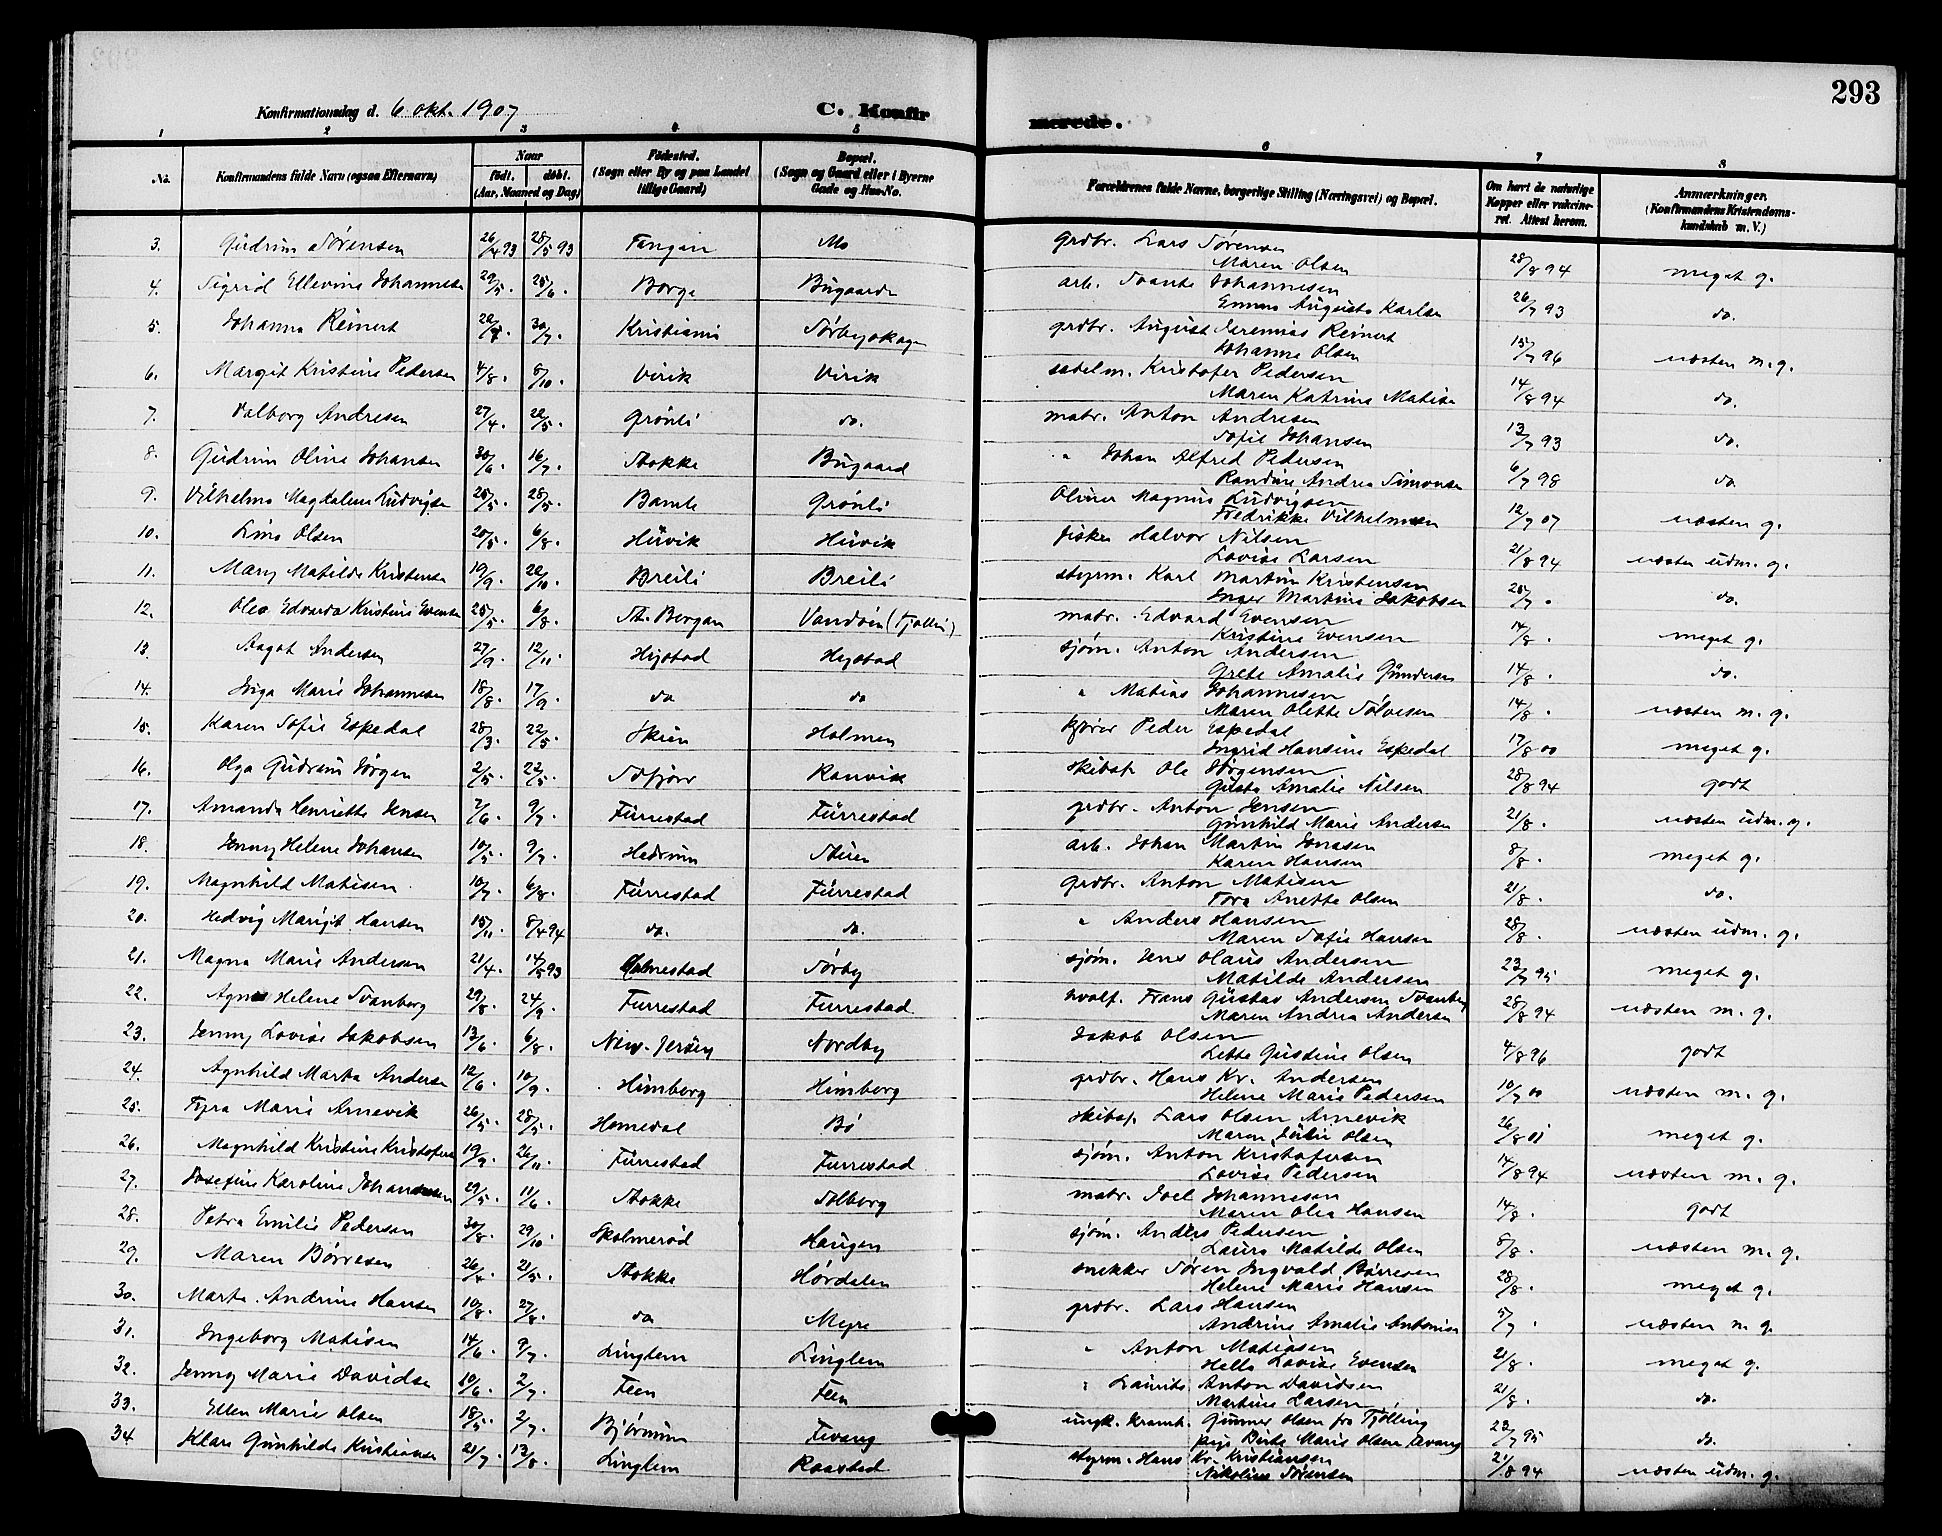 293
Konfirmationsdag d. 6 okt. 1907
C. Konfirmerede.
1 2 3 4 5 6 7 8
No.
Konfirmandens fulde Navn (ogsaa Efternavn)
Naar født. døbt. (Aar, Maaned og Dag)
Fødested. (Sogn eller By og paa Landet tillige Gaard)
Bopæl. (Sogn og Gaard eller i Byerne Gade og Hus-No.
Forældrenes fulde Navne, borgerlige Stilling (Næringsvei) og Bopæl.
Om havt de naturlige Kopper eller vakcineret. Attest herom.
Anmærkninger. (Konfirmandens Kristendomskundskab m. V.)
3. Gudrun Sørensen 26/4 93 28/5 93 Tangen Mo grdbr. Lars Sørensen
Maren Olsen 28/8 94 meget g.
4. Sigrid Ellevine Johannesen 29/5. 25/6. Borge Bugaarde arb. Svante Johannesen
Emma Augusta Karlsen 26/7 93 do.
5. Johanna Reinert 30/7. Kristiania Sørbyskogen grdbr. August Jeremias Reinert
Johanne Olsen 15/7 96 næsten m. g.
6. Margit Kristine Pedersen 4/8. 8/10. Virik Virik sadelm. Kristofer Pedersen
Maren Katrine Matisen 14/8 94 do.
7. Valborg Andresen 27/4. 22/5. Grønli do. matr. Anton Andresen
Sofie Johansen 13/7 93 do.
8. Gudrun Oline Johansen 30/6. 16/7. Stokke Bugaard " Johan Alfred Pedersen
Randine Andrea Simonsen 6/7 98 do.
9. Vilhelma Magdalene Ludvigsen 28/5. Bamle Grønli Oliver Magnus Ludvigsen
Fredrikke Vilhelmsen 12/7 07 næsten g.
10. Lina Olsen 20/5. 6/8. Huvik Huvik fisker Halvor Nilsen
Lovise Larsen 21/8 94 næsten udm. g.
11. Mary Matilde Kristensen 19/9. 22/10. Breili Breili styrm. Karl Martin Kristensen
Inger Martine Jakobsen 25/7. do.
12. Olea Edvarda Kristine Evensen 25/5. 6/8. St. Bergan (Tjølling) matr. Edvard Evensen
Kristine Evensen 14/8. meget g.
13. Aagot Andersen 27/9. 12/11. Hystad Hystad sjøm. Anton Andersen
Grete Amalie Gundersen 14/8. do.
14. Inga Marie Johannesen 18/8. 17/9. do do " Matias Johannesen
Maren Olette Sølvesen 14/8. næsten m. g.
15. Karen Sofie Espedal 28/3. 22/5. Skien Holmen kjører Peder Espedal
Ingrid Hansine Espedal 17/8 00 meget g.
16. Olga Gudrun Jørgen 2/5. 22/5. Sdfjor Ranvik skibsf. Ole Jørgensen
Gusta Amalie Nilsen 28/8 94 godt
17. Amanda Henriette Jensen 7/6. 9/7. Furrestad Furrestad grdbr. Anton Jensen
Gunhild Marie Andersen 21/8. næsten udm. g.
18. Jenny Helene Johansen 10/5. 9/7. Hedrum Stuen arb. Johan Martin Jonasen
Karen Hansen 8/8. meget g.
19. Magnhild Matisen. 10/7. 6/8. Furrestad Furrestad grdbr. Anton Matisen
Tora Anette Olsen 21/8. do.
20. Hedvig Margit Hansen 15/11. 8/4 94 do. do. " Anders Hansen
Maren Sofie Hansen 28/8. næsten udm. g.
21. Magna Marie Andersen 21/4. 14/5 93 Holmestad Sørby sjøm. Jens Olaus Andersen
Matilde Andersen 23/7 95 meget g.
22. Agnes Helene Svanberg 29/8. 24/9. Furrestad Furrestad hvalf. Frans Gustav Andersen Svanberg
Maren Andrea Andersen 28/8 94 næsten m. g.
23. Jenny Lovise Jakobsen 13/6. 6/8. New-Jersey Nordby Jakob Olsen
Lette Gustine Olsen 4/8 96 godt
24. Agnhild Marta Andersen 12/6. 10/9. Himberg Himberg grdbr. Hans Kr. Andersen
Helene Marie Pedersen 10/7 00 næsten m. g.
25. Tyra Marie Arnevik 26/5. 28/5. Homedal Bø skibsf. Lars Olsen Arnevik
Maren Julie Olsen 26/8 05 meget g.
26. Magnhild Kristine Kristofersen 19/9. 26/11. Furrestad Furrestad sjøm. Anton Kristofersen
Lovise Pedersen 14/8 94 næsten m. g.
27. Josefine Karoline Johannesen 29/5. 11/6. Stokke Solberg matr. Joel Johannesen
Maren Olea Hansen 14/8. godt
28. Petra Emilie Pedersen 30/8. 29/10. Skolmerød Haugen sjøm. Anders Pedersen
Laura Matilde Olsen 8/8. næsten m. g.
29. Maren Børresen 26/4. 21/5. Stokke Hørdalen snekker Søren Ingvald Børresen
Helene Marie Hansen 28/8. meget g.
30. Marta Andrine Hansen 10/8. 27/8. do Myre grdbr. Lars Hansen
Andrine Amalie Antonisen 5/7. næsten m. g.
31. Ingeborg Matisen 14/6. 9/7. Linglem Linglem " Anton Matiasen
Helle Lovise Evensen 21/8. meget g.
32. Jenny Marie Davidsen 10/6. 2/7. Feen Feen " Laurits Anton Davidsen
Martine Larsen 21/8. do.
33. Ellen Marie Olsen 18/5. 2/7. Bjørnum Fevang ungk. Gunner Olsen fra Tjølling
pige Berte Marie Olsen Fevang 23/7 95 do.
34 Klara Gunhilda Kristiansen 21/7. 13/8. Linglem Raastad styrm. Hans Kr. Kristiansen
Nikoline Sørensen 21/8 94 næsten udm. g.